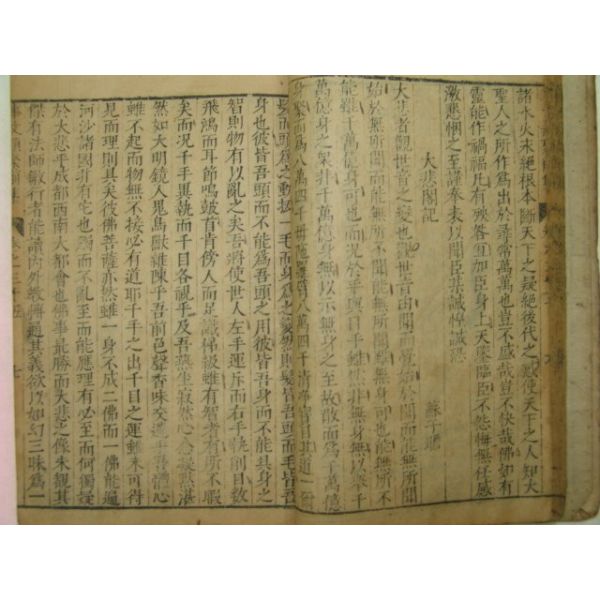 諸水火永絶根本斷天下之疑絶後代之惑使天下之人知大
聖人之所作爲出於尋常萬萬也豈不盛哉豈不快哉佛如有
靈能作禍福凡有殃咎宜加臣身上天鑒臨臣不怨悔無任感
激懇悃之至謹奉表以聞臣某誠惶誠恐
大悲閣記
蘇子瞻
大悲者觀世音之變也觀世音由聞而覺始於聞而能無所聞
始於無所聞而能無所不聞能無所聞雖無身可也能無所不
能雖千萬億身可也而況於手與目乎雖然非無身無以擧千
萬億身之衆非千萬億身無以示無身之至故散而爲千萬億
身聚而爲八萬四千母陀羅臂八萬四千清淨寶目其道一
髮而頭爲之動撥一毛而身爲之變然則髮皆吾頭而毛皆吾
身也彼皆吾頭而不能爲吾頭之用彼皆吾身而不能具身之
智則物有以亂之矣吾將使世人左手運斤而右手執削目數
飛鴻而耳節鳴鼓首肯傍人而足識梯級雖有智者有所不暇
矣而况千手異執而千目各視乎及吾燕坐寂然心念凝黙湛
然如大明鏡人鬼鳥獸雜陳乎吾前色聲香味交遘乎吾體心
雖不起而物無不接必有道耶千手之出千目之運雖未可得
見而理則具矣彼佛菩薩亦然雖一身不成二佛而一佛能遍
河沙諸國非有它也觸而不亂至而能應理有必至而何獨疑
於大悲乎成都西南大都會也佛事最勝而大悲之像未覩其
傑有法師敏行者能讀内外教博通其義欲以如幻三昧爲一